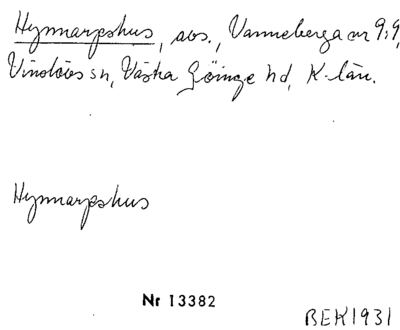 Hymnarpshus, avs., Vanneberga nr 9:9,
Vinslövs sn, Västra Göinge hd, K-län.
Hymnarpshus
Nr 13382
BEK1931